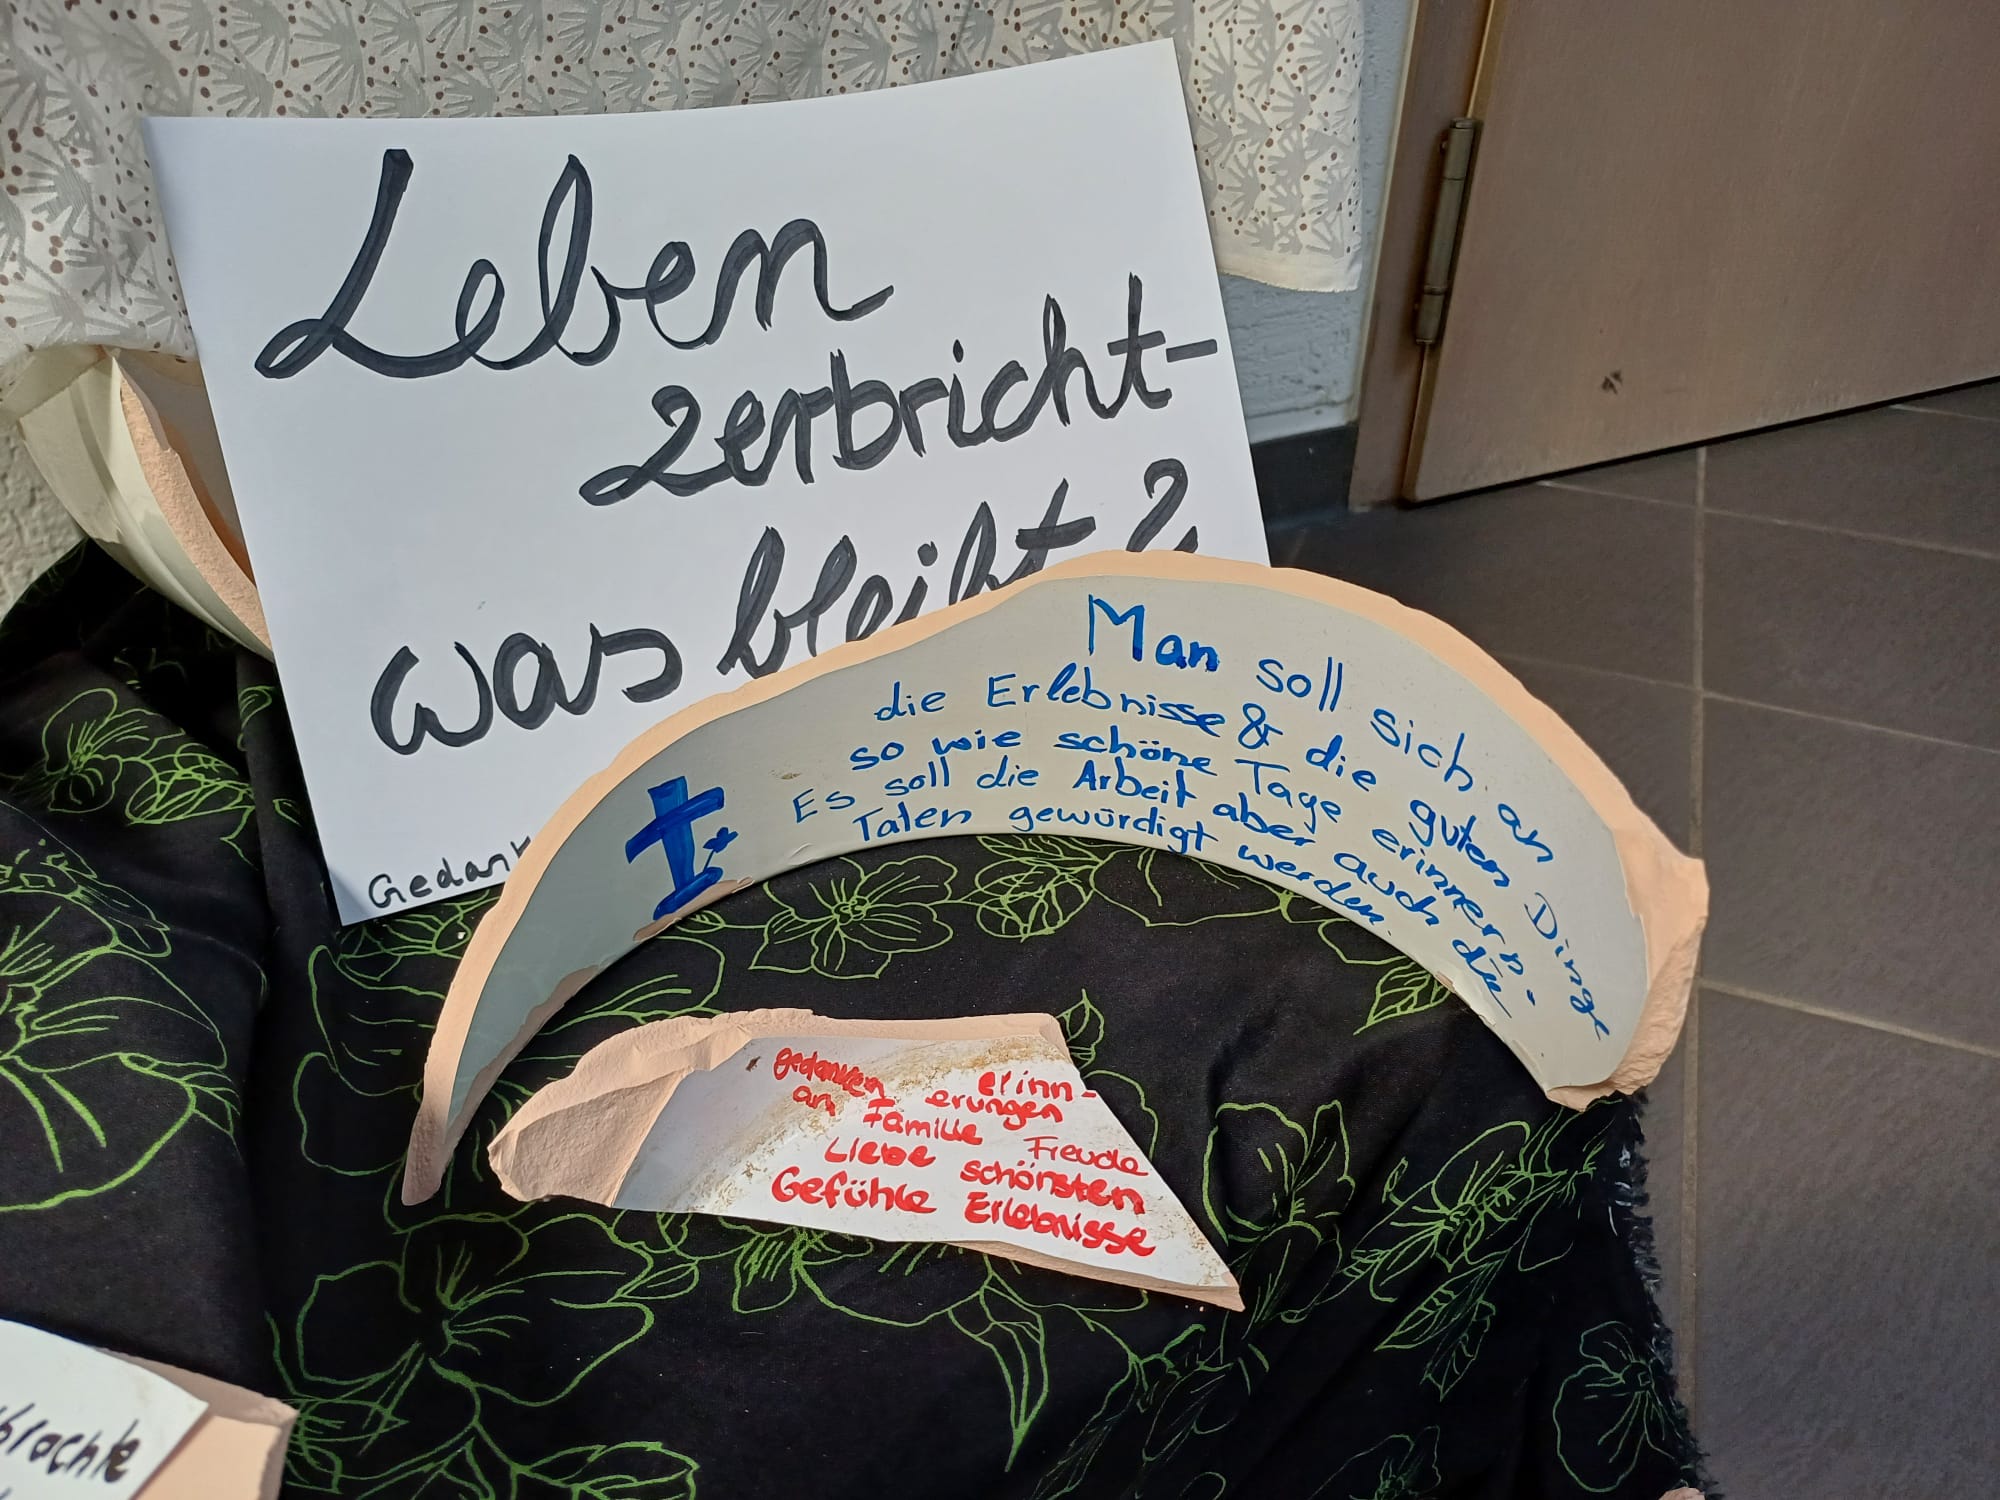 Leben
zerbricht-
was bleibt?
Man soll sich an
die Erlebnisse & die guten Dinge
so wie schöne Tage erinnern.
Es soll die Arbeit aber auch die
Taten gewürdigt werden.
gedanken erinn-
an erungen
Familie Freude
Liebe schönsten
Gefühle Erlebnisse